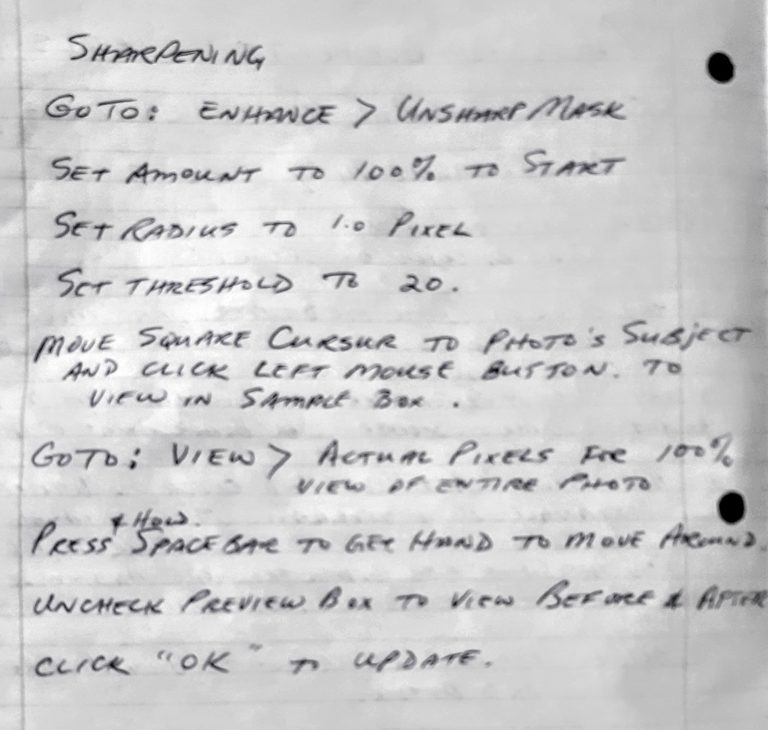 SHARPENING
GO TO: ENHANCE > UNSHARP MASK
SET AMOUNT TO 100% TO START
SET RADIUS TO 1.0 PIXEL
SET THRESHOLD TO 20.
MOVE SQUARE CURSUR TO PHOTO'S SUBJECT
AND CLICK LEFT MOUSE BUTTON. TO
VIEW IN SAMPLE BOX.
GO TO: VIEW > ACTUAL PIXELS FOR 100%
VIEW OF ENTIRE PHOTO
& HOLD
PRESS SPACE BAR TO GET HAND TO MOVE AROUND.
UNCHECK PREVIEW BOX TO VIEW BEFORE & AFTER
CLICK "OK" TO UPDATE.